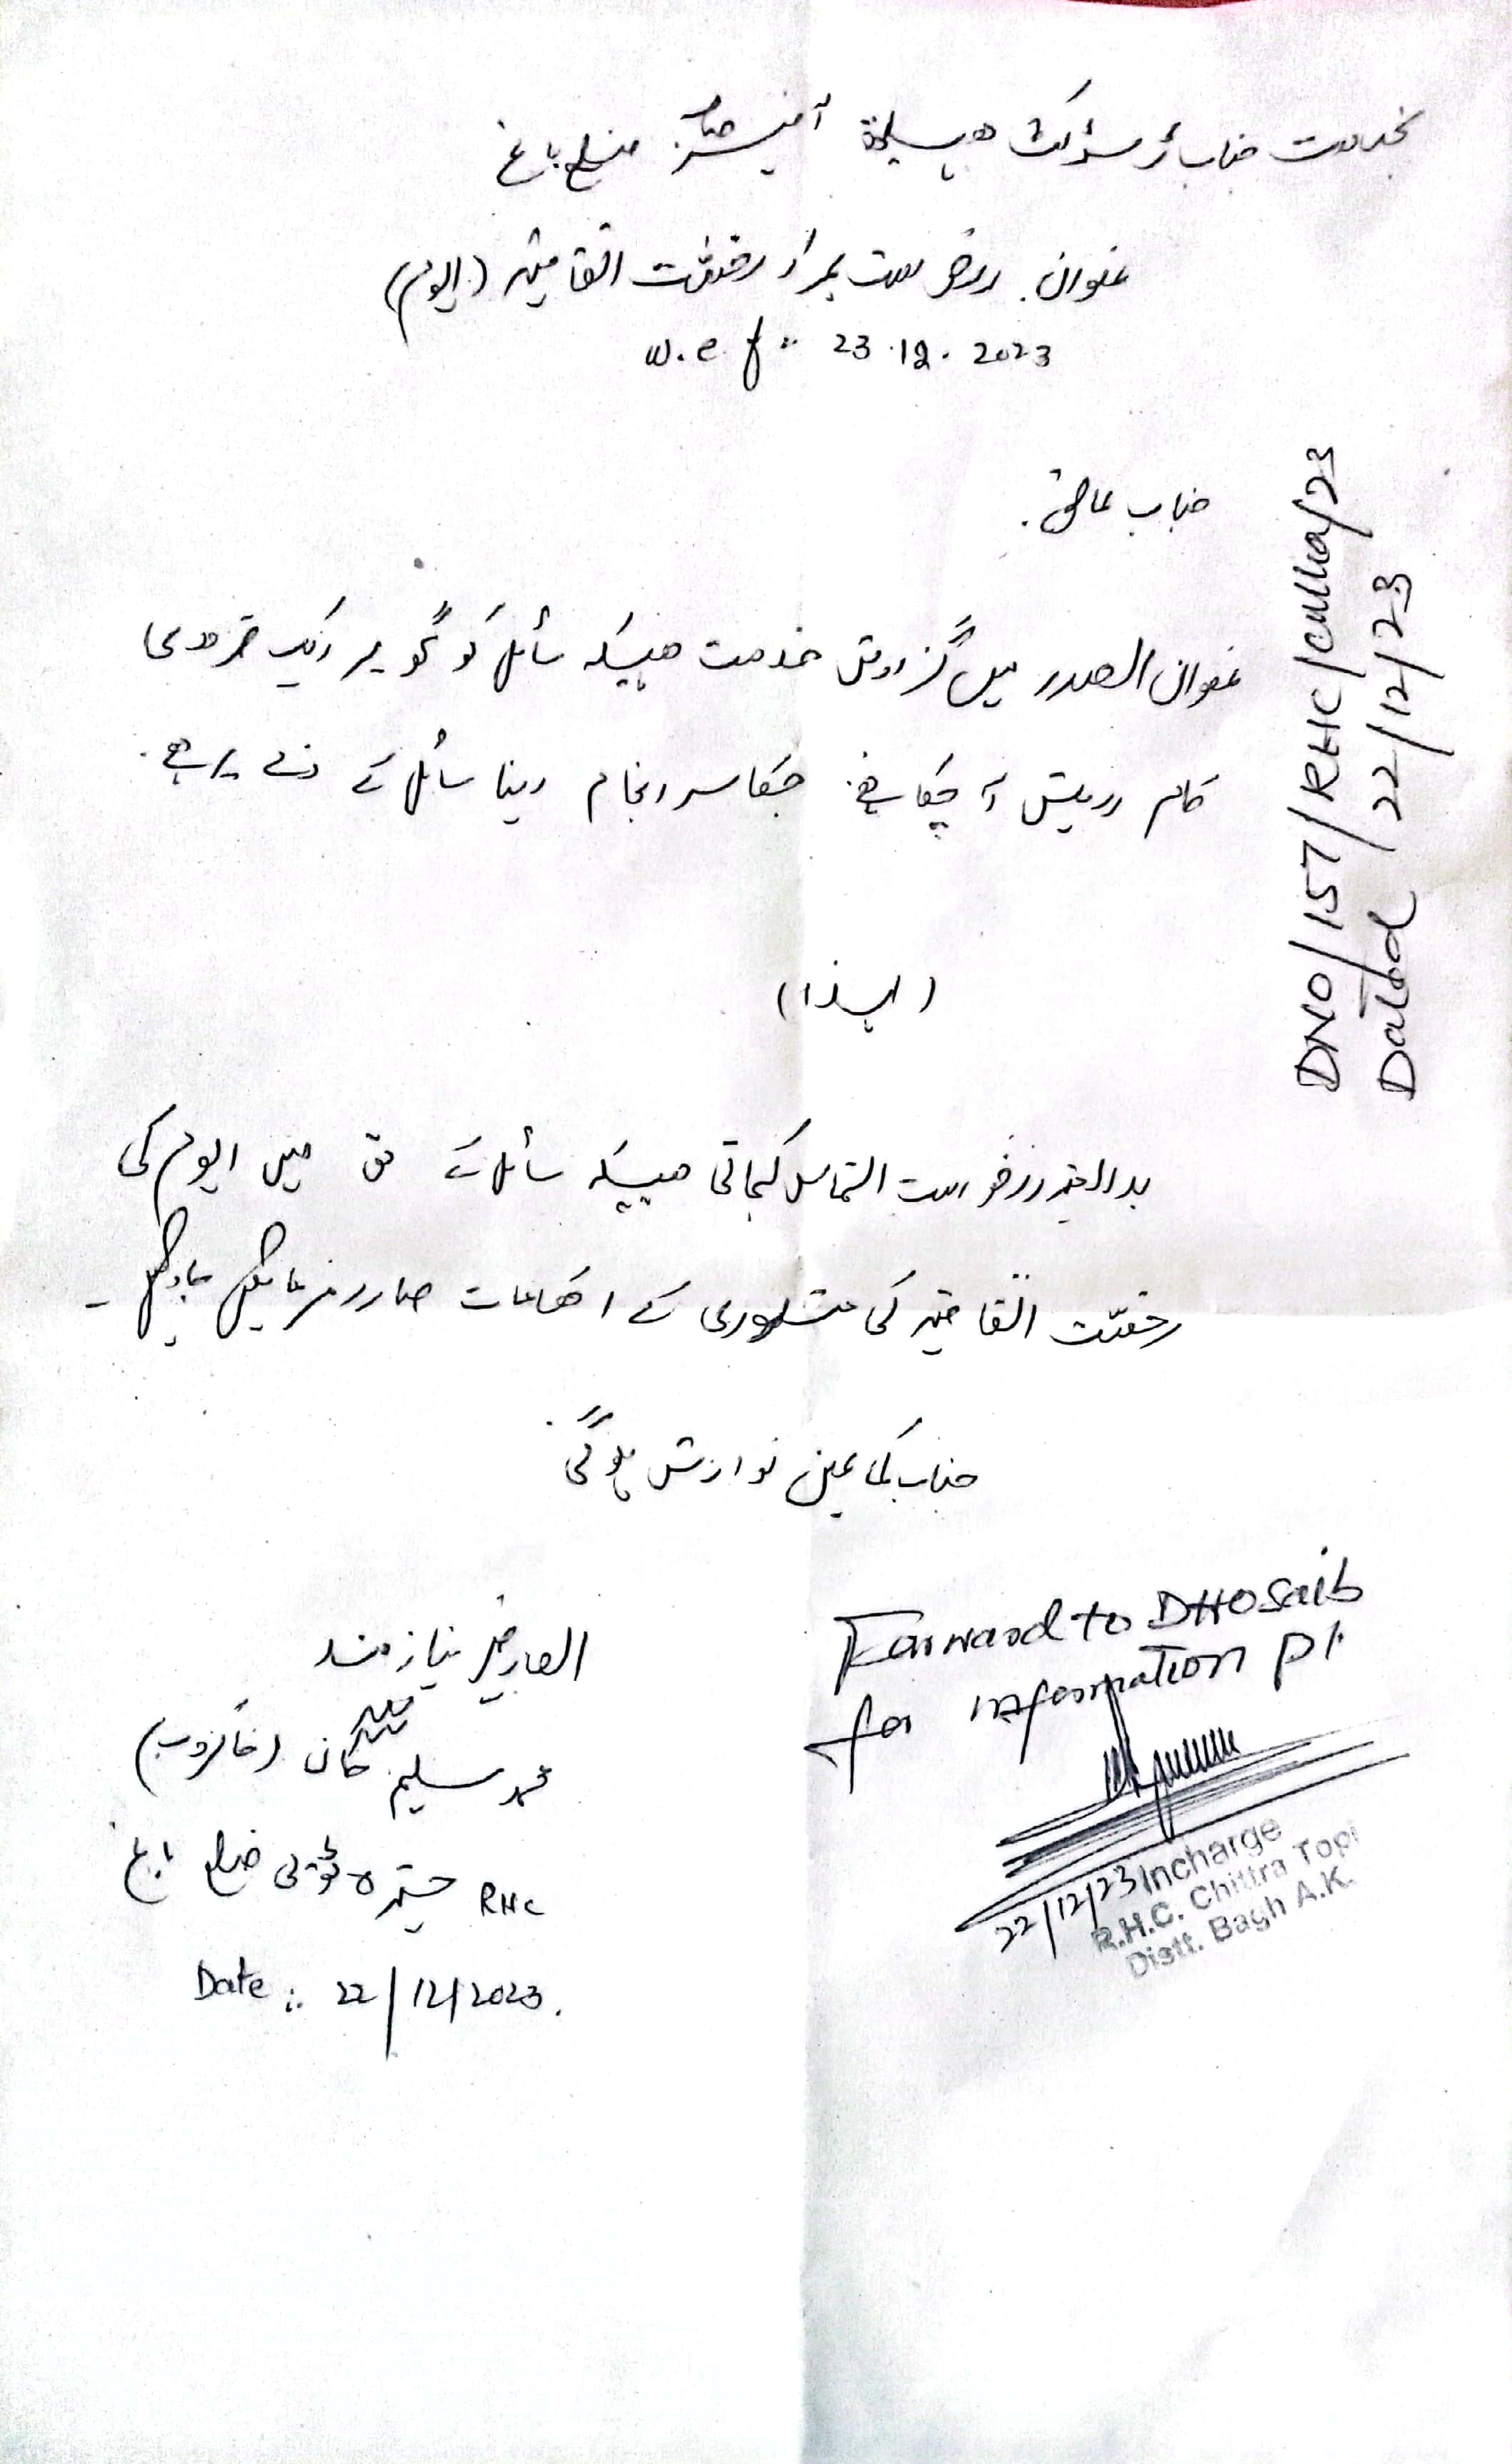 بخدمت جناب ڈسٹرکٹ ہیلتھ آفیسر صاحب ضلع باغ
عنوان. درخواست بمراد رخصت اتفاقیہ (الیوم)
w.e.f :: 23.12.2023
جناب عالی.
عنوان الصدر میں گزارش خدمت ہیکہ سائل کو گھر پر ایک ضروری
کام درپیش آ چکا ہے. جسکا سر انجام دینا سائل کے ذمے ہے.
(لہذا)
بذریعہ درخواست التماس کیجاتی ہیکہ سائل کے حق میں ایوم کی
رخصت اتفاقیہ کی منظوری کے احکامات صادر فرمائیں جاویں -
جناب کی عین نوازش ہو گی.
العارض نیازمند
محمد سلیم خان (خاکروب)
RHC چتڑہ ٹوپی ضلع باغ
Date :: 22/12/2023.
DNO/157/RHC/
Dated 22/12/23
Forward to DHO Saib
for information pl.
22/12/23 Incharge
R.H.C. Chittra Topi
Distt. Bagh A.K.